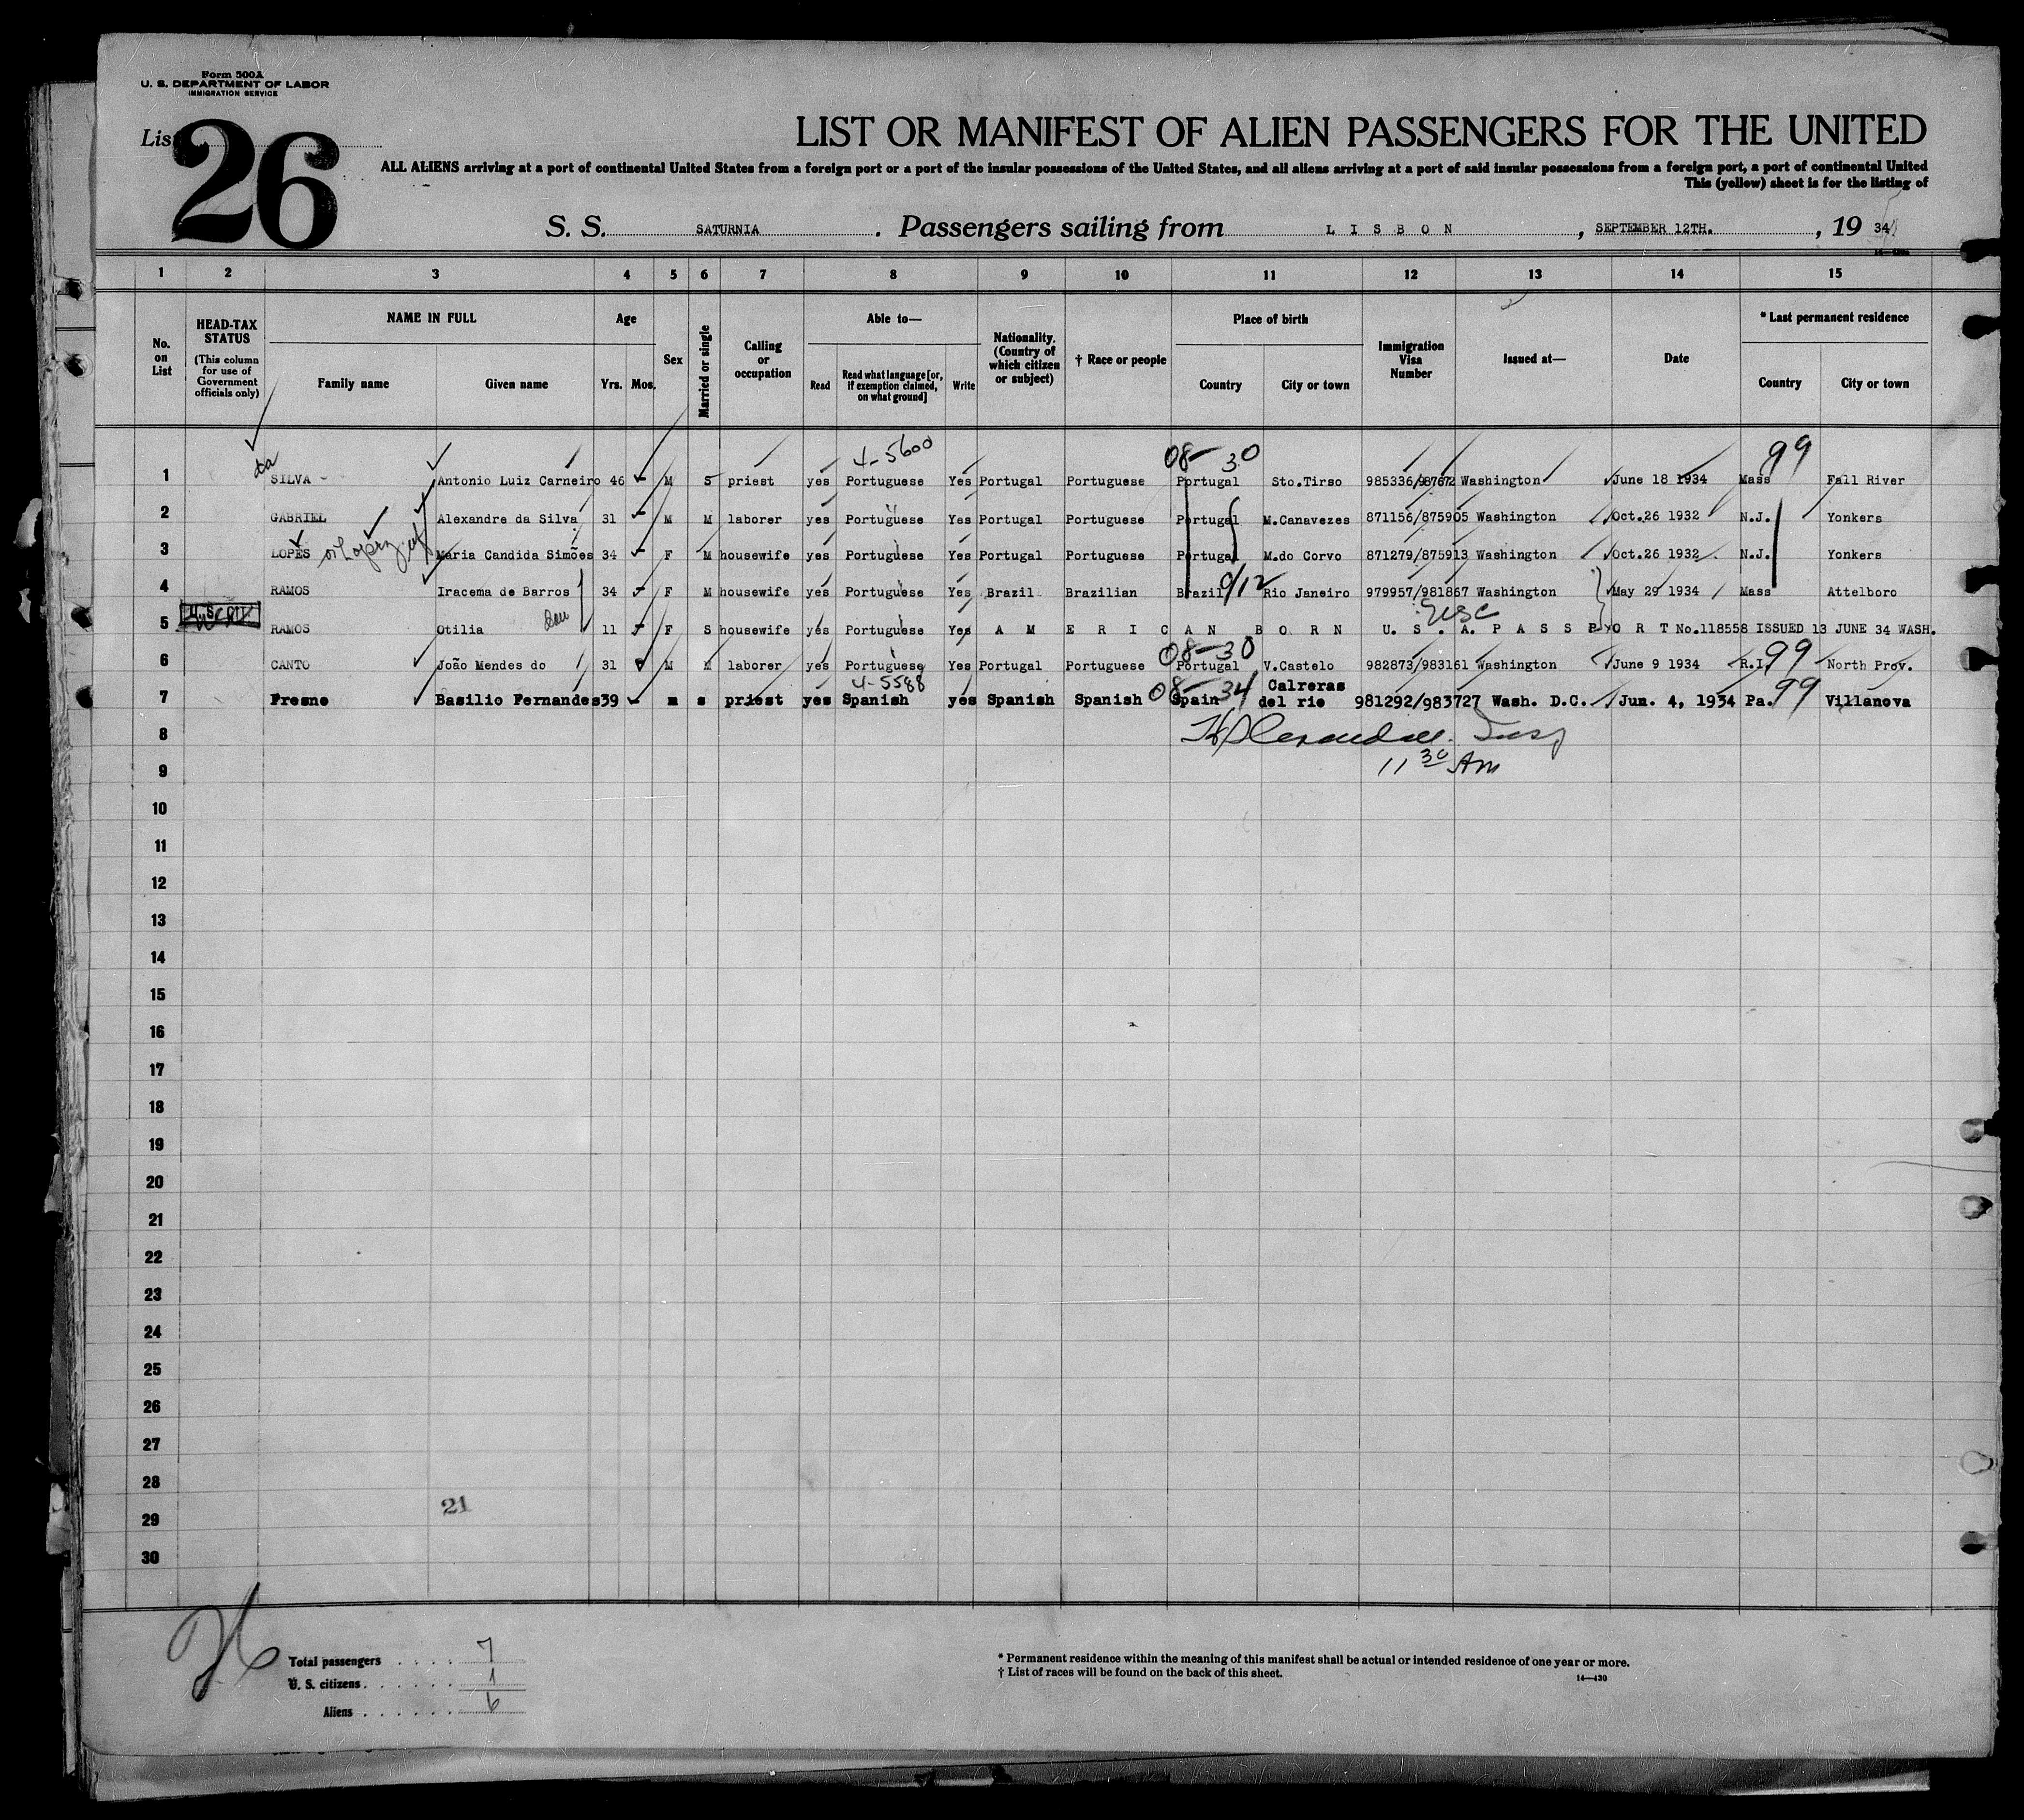 Form 500A
U. S. DEPARTMENT OF LABOR
IMMIGRATION SERVICE
List 26
LIST OR MANIFEST OF ALIEN PASSENGERS FOR THE UNITED
ALL ALIENS arriving at a port of continental United States from a foreign port or a port of the insular possessions of the United States, and all aliens arriving at a port of said insular possessions from a foreign port, a port of continental United
This (yellow) sheet is for the listing of
S. S. SATURNIA. Passengers sailing from LISBON, SEPTEMBER 12TH., 19 34
1 2 3 4 5 6 7 8 9 10 11 12 13 14 15
No. on List
HEAD-TAX STATUS (This column for use of Government officials only)
NAME IN FULL Family name Given name
Age Yrs. Mos.
Sex
Married or single
Calling or occupation
Able to— Read Read what language [or, if exemption claimed, on what ground] Write
Nationality. (Country of which citizen or subject)
† Race or people
Place of birth Country City or town
Immigration Visa Number
Issued at—
Date
* Last permanent residence Country City or town
da 4-5600 08-30 99
1 SILVA Antonio Luiz Carneiro 46 M S priest yes Portuguese Yes Portugal Portuguese Portugal Sto.Tirso 985336/987672 Washington June 18 1934 Mass Fall River
2 GABRIEL Alexandre da Silva 31 M M laborer yes Portuguese Yes Portugal Portuguese Portugal M.Canavezes 871156/875905 Washington Oct.26 1932 N.J. Yonkers
3 LOPES or Lopez wf Maria Candida Simões 34 F M housewife yes Portuguese Yes Portugal Portuguese Portugal M.do Corvo 871279/875913 Washington Oct.26 1932 N.J. Yonkers
4 RAMOS Iracema de Barros 34 F M housewife yes Portuguese Yes Brazil Brazilian Brazil 0/12 Rio Janeiro 979957/981867 Washington May 29 1934 Mass Attelboro
USC
5 RAMOS Otilia dau 11 F S housewife yes Portuguese Yes AMERICAN BORN U.S.A. PASSPORT No.118558 ISSUED 13 JUNE 34 WASH.
08-30 99
6 CANTO João Mendes do 31 M M laborer yes Portuguese Yes Portugal Portuguese Portugal V.Castelo 982873/983161 Washington June 9 1934 R.I. North Prov.
4-5588 08-34 99
7 Fresno Basilio Fernandes 39 m s priest yes Spanish yes Spanish Spanish Spain Calreras del rio 981292/983727 Wash. D.C. Jun. 4, 1934 Pa. Villanova
8 Insp
9 11 30 Am
10
11
12
13
14
15
16
17
18
19
20
21
22
23
24
25
26
27
28
21
29
30
Total passengers . . . . 7
U. S. citizens . . . . . . 1
Aliens . . . . . . 6
* Permanent residence within the meaning of this manifest shall be actual or intended residence of one year or more.
† List of races will be found on the back of this sheet.
14—430